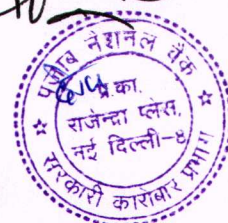 पंजाब नैशनल बैंक
प्र.का.
राजेन्द्रा प्लेस,
नई दिल्ली-८
सरकारी कारोबार प्रभाग